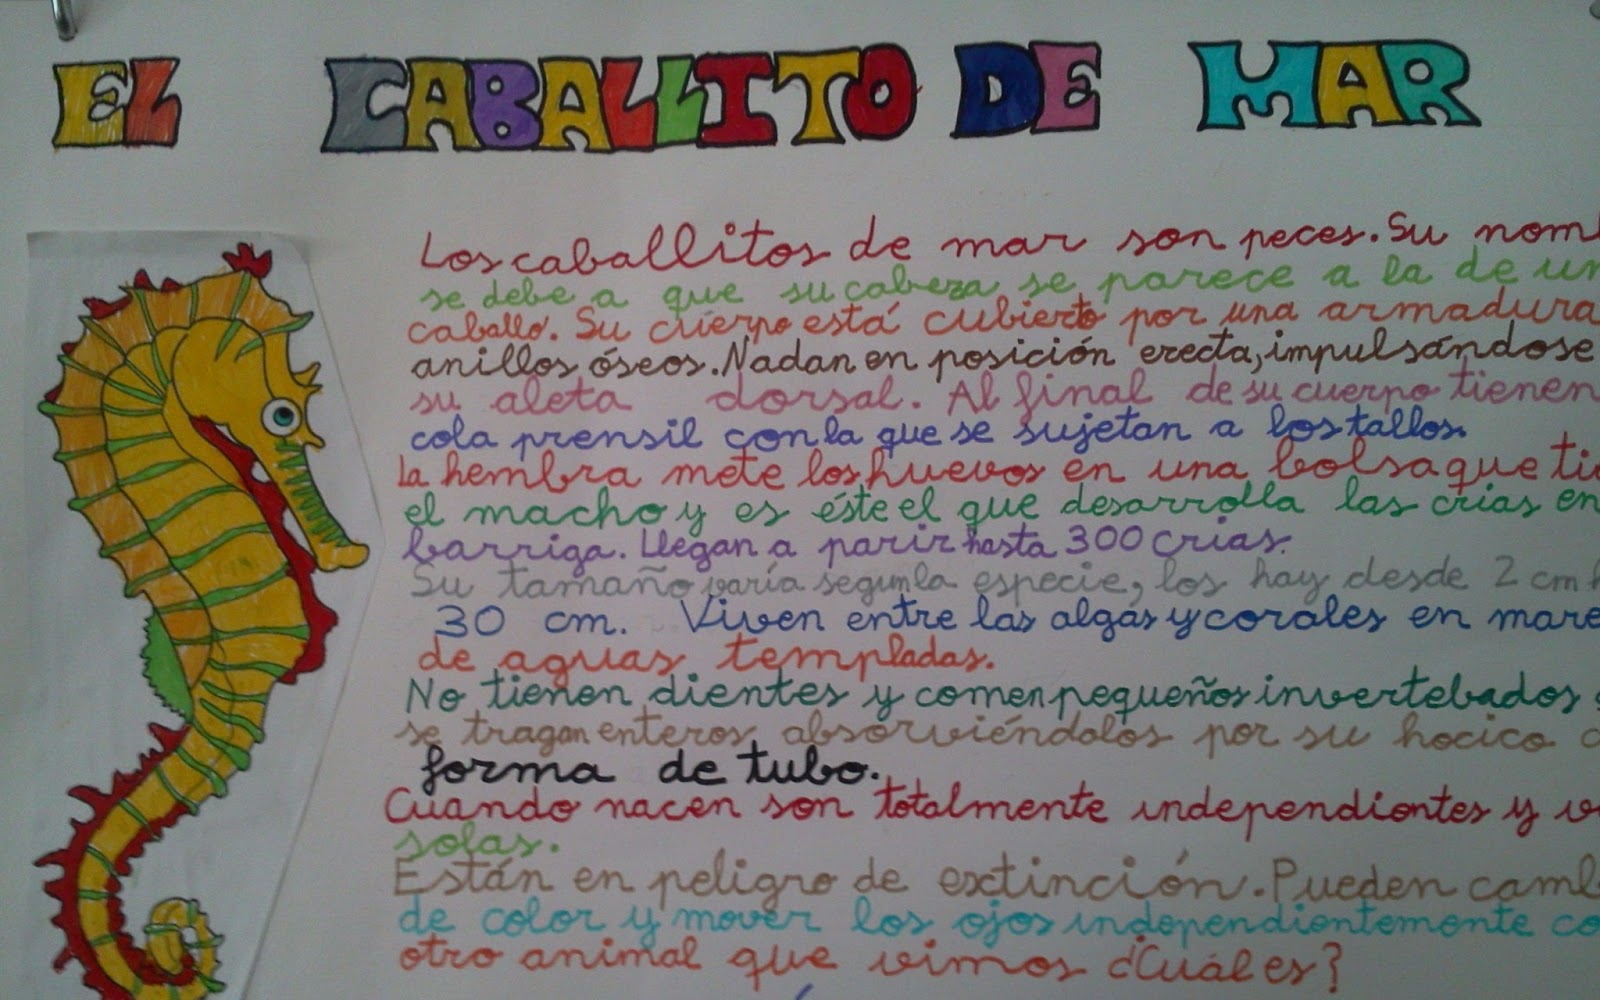 EL CABALLITO DE MAR
Los caballitos de mar son peces. Su nom
se debe a que su cabeza se parece a la de un
caballo. Su cuerpo está cubierto por una armadura
anillos óseos. Nadan en posición erecta, impulsándose
su aleta dorsal. Al final de su cuerpo tienen
cola prensil con la que se sujetan a los tallos.
La hembra mete los huevos en una bolsa que ti
el macho y es éste el que desarrolla las crias en
barriga. Llegan a parir hasta 300 crias.
Su tamaño varía segun la especie, los hay desde 2 cm h
30 cm. Viven entre las algas y corales en mare
de aguas templadas.
No tienen dientes y comen pequeños invertebados
se tragan enteros absorviéndolos por su hocico
forma de tubo.
Cuando nacen son totalmente independientes y v
solas.
Están en peligro de extinción. Pueden camb
de color y mover los ojos independientemente co
otro animal que vimos ¿Cuál es?